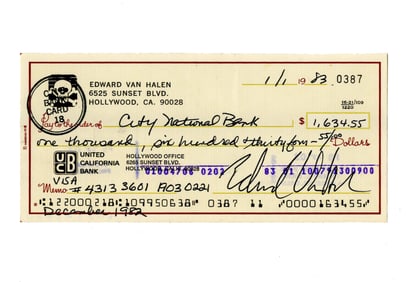 EDWARD VAN HALEN
6525 SUNSET BLVD.
HOLLYWOOD, CA. 90028
1/1 1983 0387
16-21/109
1220
BANK
CARD
18
Pay to the order of City National Bank $ 1,634.55
one thousand, six hundred & thirty four - 55/100 Dollars
UNITED
CALIFORNIA
BANK
HOLLYWOOD OFFICE
6265 SUNSET BLVD.
HOLLYWOOD, CA. 90028
01004708 0202 83 01 100798300900
VISA
Memo # 4313 3601 A030221
122000218 109950638 0387 11 0000163455
December 1982